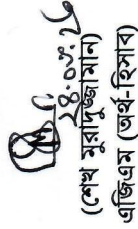 ১৪.০৫.২৫
(শেখ মুরাদুজ্জামান)
এজিএম (অর্থ-হিসাব)